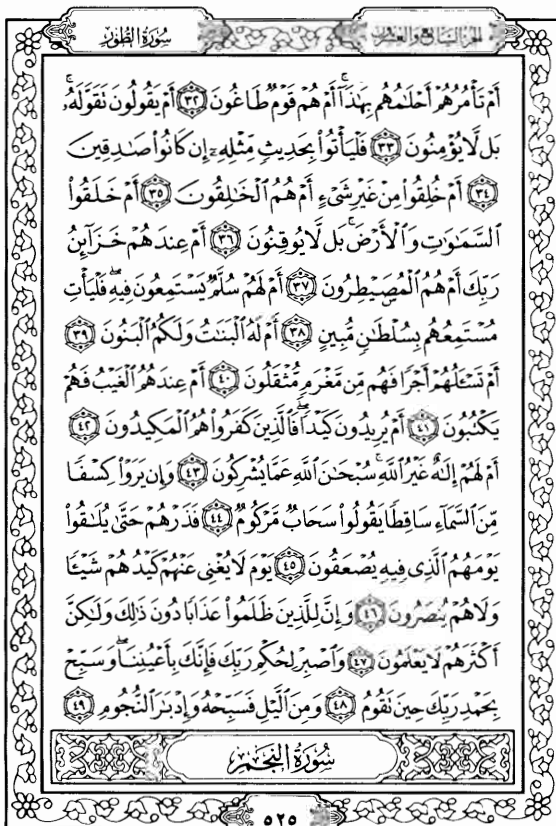 سُورَةُ الطُّورِ الجزء السابع والعشرون
أَمْ تَأْمُرُهُمْ أَحْلَـٰمُهُم بِهَـٰذَآ ۚ أَمْ هُمْ قَوْمٌ طَاغُونَ ﴿٣٢﴾ أَمْ يَقُولُونَ تَقَوَّلَهُۥ ۚ
بَل لَّا يُؤْمِنُونَ ﴿٣٣﴾ فَلْيَأْتُوا۟ بِحَدِيثٍ مِّثْلِهِۦٓ إِن كَانُوا۟ صَـٰدِقِينَ
﴿٣٤﴾ أَمْ خُلِقُوا۟ مِنْ غَيْرِ شَىْءٍ أَمْ هُمُ ٱلْخَـٰلِقُونَ ﴿٣٥﴾ أَمْ خَلَقُوا۟
ٱلسَّمَـٰوَٰتِ وَٱلْأَرْضَ ۚ بَل لَّا يُوقِنُونَ ﴿٣٦﴾ أَمْ عِندَهُمْ خَزَآئِنُ
رَبِّكَ أَمْ هُمُ ٱلْمُصَۣيْطِرُونَ ﴿٣٧﴾ أَمْ لَهُمْ سُلَّمٌ يَسْتَمِعُونَ فِيهِ ۖ فَلْيَأْتِ
مُسْتَمِعُهُم بِسُلْطَـٰنٍ مُّبِينٍ ﴿٣٨﴾ أَمْ لَهُ ٱلْبَنَـٰتُ وَلَكُمُ ٱلْبَنُونَ ﴿٣٩﴾
أَمْ تَسْـَٔلُهُمْ أَجْرًا فَهُم مِّن مَّغْرَمٍ مُّثْقَلُونَ ﴿٤٠﴾ أَمْ عِندَهُمُ ٱلْغَيْبُ فَهُمْ
يَكْتُبُونَ ﴿٤١﴾ أَمْ يُرِيدُونَ كَيْدًا ۖ فَٱلَّذِينَ كَفَرُوا۟ هُمُ ٱلْمَكِيدُونَ ﴿٤٢﴾
أَمْ لَهُمْ إِلَـٰهٌ غَيْرُ ٱللَّهِ ۚ سُبْحَـٰنَ ٱللَّهِ عَمَّا يُشْرِكُونَ ﴿٤٣﴾ وَإِن يَرَوْا۟ كِسْفًا
مِّنَ ٱلسَّمَآءِ سَاقِطًا يَقُولُوا۟ سَحَابٌ مَّرْكُومٌ ﴿٤٤﴾ فَذَرْهُمْ حَتَّىٰ يُلَـٰقُوا۟
يَوْمَهُمُ ٱلَّذِى فِيهِ يُصْعَقُونَ ﴿٤٥﴾ يَوْمَ لَا يُغْنِى عَنْهُمْ كَيْدُهُمْ شَيْـًٔا
وَلَا هُمْ يُنصَرُونَ ﴿٤٦﴾ وَإِنَّ لِلَّذِينَ ظَلَمُوا۟ عَذَابًا دُونَ ذَٰلِكَ وَلَـٰكِنَّ
أَكْثَرَهُمْ لَا يَعْلَمُونَ ﴿٤٧﴾ وَٱصْبِرْ لِحُكْمِ رَبِّكَ فَإِنَّكَ بِأَعْيُنِنَا ۖ وَسَبِّحْ
بِحَمْدِ رَبِّكَ حِينَ تَقُومُ ﴿٤٨﴾ وَمِنَ ٱلَّيْلِ فَسَبِّحْهُ وَإِدْبَـٰرَ ٱلنُّجُومِ ﴿٤٩﴾
سُورَةُ النَّجْمِ
٥٢٥